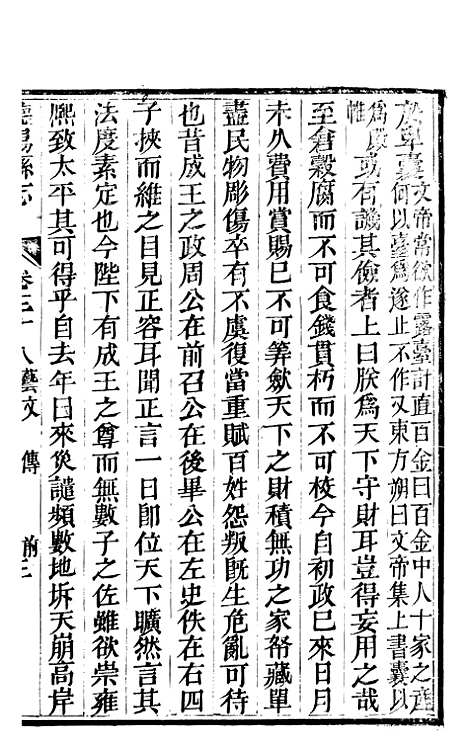 於皁囊文帝常欲作露臺計直百金曰百金中人十家之產
何以臺爲遂止不作又東方朔曰文帝集上書囊以
爲殿帷
或有譏其儉者上曰朕爲天下守財耳豈得妄用之哉
至倉穀腐而不可食錢貫朽而不可校今自初政已來日月
未久費用賞賜已不可筭斂天下之財積無功之家帑藏單
盡民物彫傷卒有不虞復當重賦百姓怨叛旣生危亂可待
也昔成王之政周公在前召公在後畢公在左史佚在右四
子挾而維之目見正容耳聞正言一日卽位天下曠然言其
法度素定也今陛下有成王之尊而無數子之佐雖欲崇雍
熈致太平其可得乎自去年已來災譴頻數地坼天崩高岸
縣志 卷三十八藝文 傳